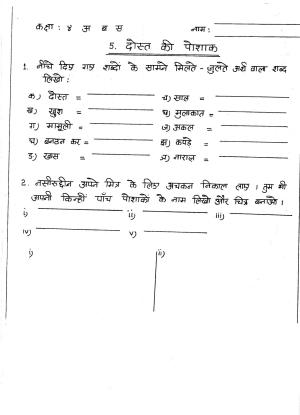 कक्षा : ४ अ ब स नाम :
५. दोस्त की पोशाक
1. नीचे दिए गए शब्दों के सामने मिलते - जुलते अर्थ वाला शब्द
लिखो :
क) दोस्त = च) खास =
ख) खुश = छ) मुलाकात =
ग) मामूली = ज) अकल =
घ) बनठन कर = झ) कपड़े =
ङ) खास = ञ) नाराज़ =
2. नसीरुद्दीन अपने मित्र के लिए अचकन निकाल लाए । तुम भी
अपनी किन्हीं पाँच पोशाकों के नाम लिखो और चित्र बनाओ ।
i) ii) iii)
iv) v)
i) ii)